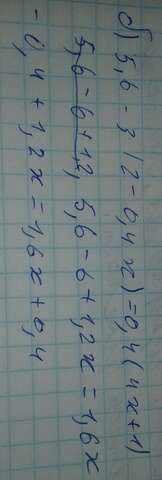 б) 5,6 - 3(2-0,4x)=0,4(4x+1)
5,6-6+1,2, 5,6-6+1,2x=1,6x
-0,4+1,2x=1,6x+0,4